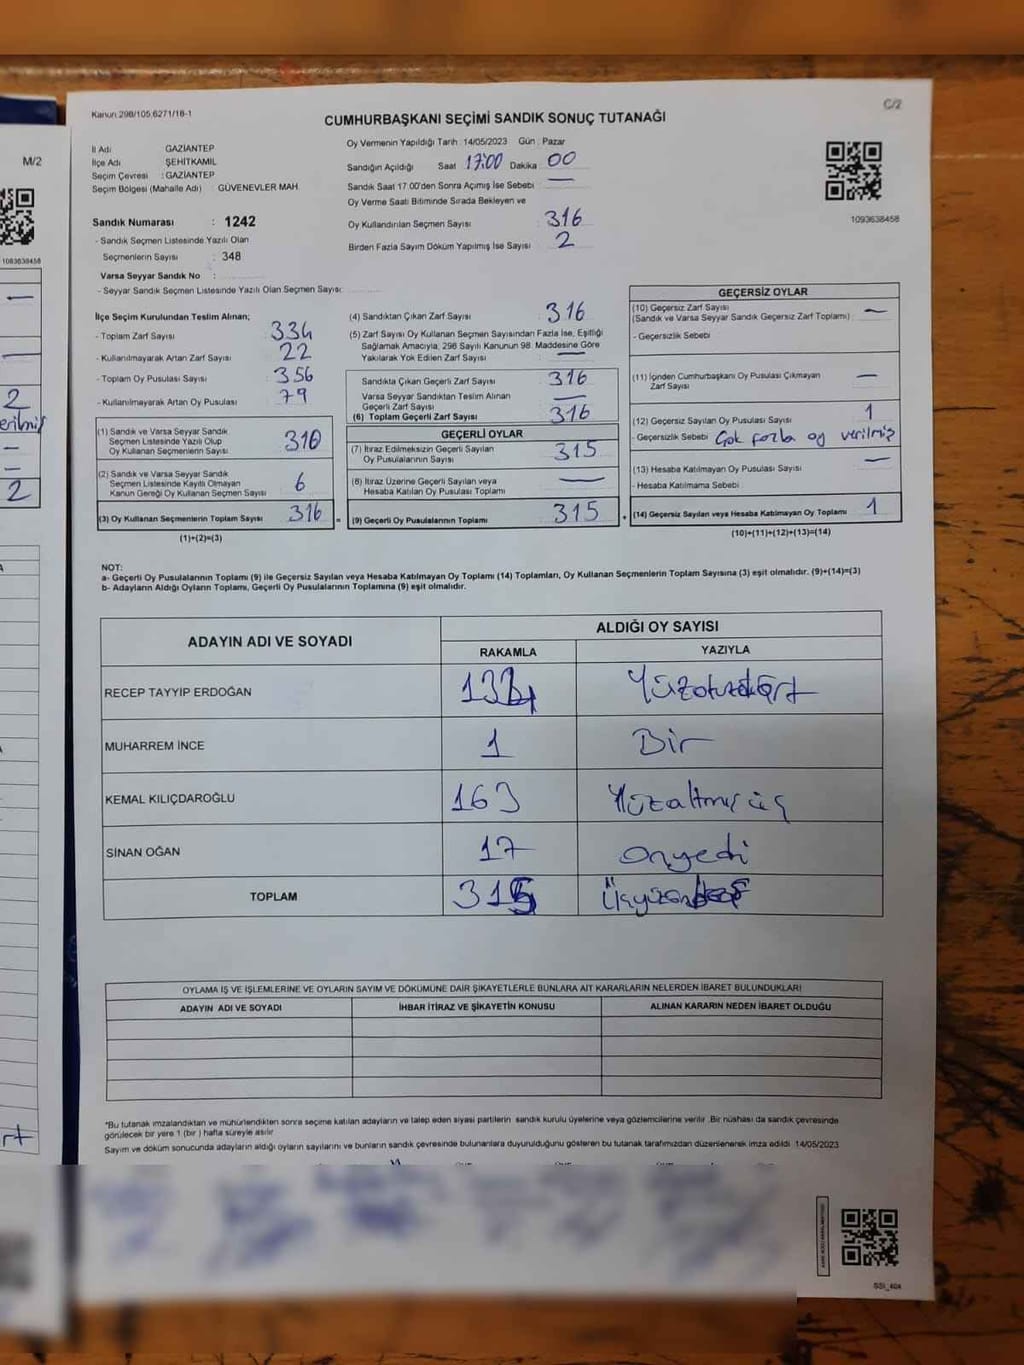 Kanun 298/105,6271/18-1
C/2
CUMHURBAŞKANI SEÇİMİ SANDIK SONUÇ TUTANAĞI
M/2
1093638458
İl Adı GAZİANTEP
İlçe Adı ŞEHİTKAMİL
Seçim Çevresi : GAZİANTEP
Seçim Bölgesi (Mahalle Adı) : GÜVENEVLER MAH.
Sandık Numarası : 1242
- Sandık Seçmen Listesinde Yazılı Olan
Seçmenlerin Sayısı : 348
Varsa Seyyar Sandık No :
- Seyyar Sandık Seçmen Listesinde Yazılı Olan Seçmen Sayısı:
Oy Vermenin Yapıldığı Tarih : 14/05/2023 Gün : Pazar
Sandığın Açıldığı Saat 17:00 Dakika 00
Sandık Saat 17.00'den Sonra Açımış İse Sebebi —
Oy Verme Saati Bitiminde Sırada Bekleyen ve
Oy Kullandırılan Seçmen Sayısı 316
Birden Fazla Sayım Döküm Yapılmış İse Sayısı 2
1093638458
İlçe Seçim Kurulundan Teslim Alınan;
- Toplam Zarf Sayısı 334
- Kullanılmayarak Artan Zarf Sayısı 22
- Toplam Oy Pusulası Sayısı 356
- Kullanılmayarak Artan Oy Pusulası 79
(1) Sandık ve Varsa Seyyar Sandık
Seçmen Listesinde Yazılı Olup
Oy Kullanan Seçmenlerin Sayısı 310
(2) Sandık ve Varsa Seyyar Sandık
Seçmen Listesinde Kayıtlı Olmayan
Kanun Gereği Oy Kullanan Seçmen Sayısı 6
(3) Oy Kullanan Seçmenlerin Toplam Sayısı 316 =
(1)+(2)=(3)
(4) Sandıktan Çıkan Zarf Sayısı 316
(5) Zarf Sayısı Oy Kullanan Seçmen Sayısından Fazla İse, Eşitliği
Sağlamak Amacıyla, 298 Sayılı Kanunun 98. Maddesine Göre
Yakılarak Yok Edilen Zarf Sayısı —
Sandıkta Çıkan Geçerli Zarf Sayısı 316
Varsa Seyyar Sandıktan Teslim Alınan
Geçerli Zarf Sayısı —
(6) Toplam Geçerli Zarf Sayısı 316
GEÇERLİ OYLAR
(7) İtiraz Edilmeksizin Geçerli Sayılan
Oy Pusulalarının Sayısı 315
(8) İtiraz Üzerine Geçerli Sayılan veya
Hesaba Katılan Oy Pusulası Toplamı —
(9) Geçerli Oy Pusulalarının Toplamı 315 +
GEÇERSİZ OYLAR
(10) Geçersiz Zarf Sayısı
(Sandık ve Varsa Seyyar Sandık Geçersiz Zarf Toplamı) —
- Geçersizlik Sebebi
(11) İçinden Cumhurbaşkanı Oy Pusulası Çıkmayan
Zarf Sayısı —
(12) Geçersiz Sayılan Oy Pusulası Sayısı 1
- Geçersizlik Sebebi Çok fazla oy verilmiş
(13) Hesaba Katılmayan Oy Pusulası Sayısı —
- Hesaba Katılmama Sebebi
(14) Geçersiz Sayılan veya Hesaba Katılmayan Oy Toplamı 1
(10)+(11)+(12)+(13)=(14)
NOT:
a- Geçerli Oy Pusulalarının Toplamı (9) ile Geçersiz Sayılan veya Hesaba Katılmayan Oy Toplamı (14) Toplamları, Oy Kullanan Seçmenlerin Toplam Sayısına (3) eşit olmalıdır. (9)+(14)=(3)
b- Adayların Aldığı Oyların Toplamı, Geçerli Oy Pusulalarının Toplamına (9) eşit olmalıdır.
ADAYIN ADI VE SOYADI ALDIĞI OY SAYISI
RAKAMLA YAZIYLA
RECEP TAYYIP ERDOĞAN 134 Yüzotuzdört
MUHARREM İNCE 1 Bir
KEMAL KILIÇDAROĞLU 163 Yüzaltmışüç
SİNAN OĞAN 17 onyedi
TOPLAM 315 Üçyüzonbeş
OYLAMA İŞ VE İŞLEMLERİNE VE OYLARIN SAYIM VE DÖKÜMÜNE DAİR ŞİKAYETLERLE BUNLARA AİT KARARLARIN NELERDEN İBARET BULUNDUKLARI
ADAYIN ADI VE SOYADI İHBAR İTİRAZ VE ŞİKAYETİN KONUSU ALINAN KARARIN NEDEN İBARET OLDUĞU
*Bu tutanak imzalandıktan ve mühürlendikten sonra seçime katılan adayların ve talep eden siyasi partilerin sandık kurulu üyelerine veya gözlemcilerine verilir. Bir nüshası da sandık çevresinde
görülecek bir yere 1 (bir) hafta süreyle asılır
Sayım ve döküm sonucunda adayların aldığı oyların sayılarını ve bunların sandık çevresinde bulunanlara duyurulduğunu gösteren bu tutanak tarafımızdan düzenlenerek imza edildi 14/05/2023
SSİ_404